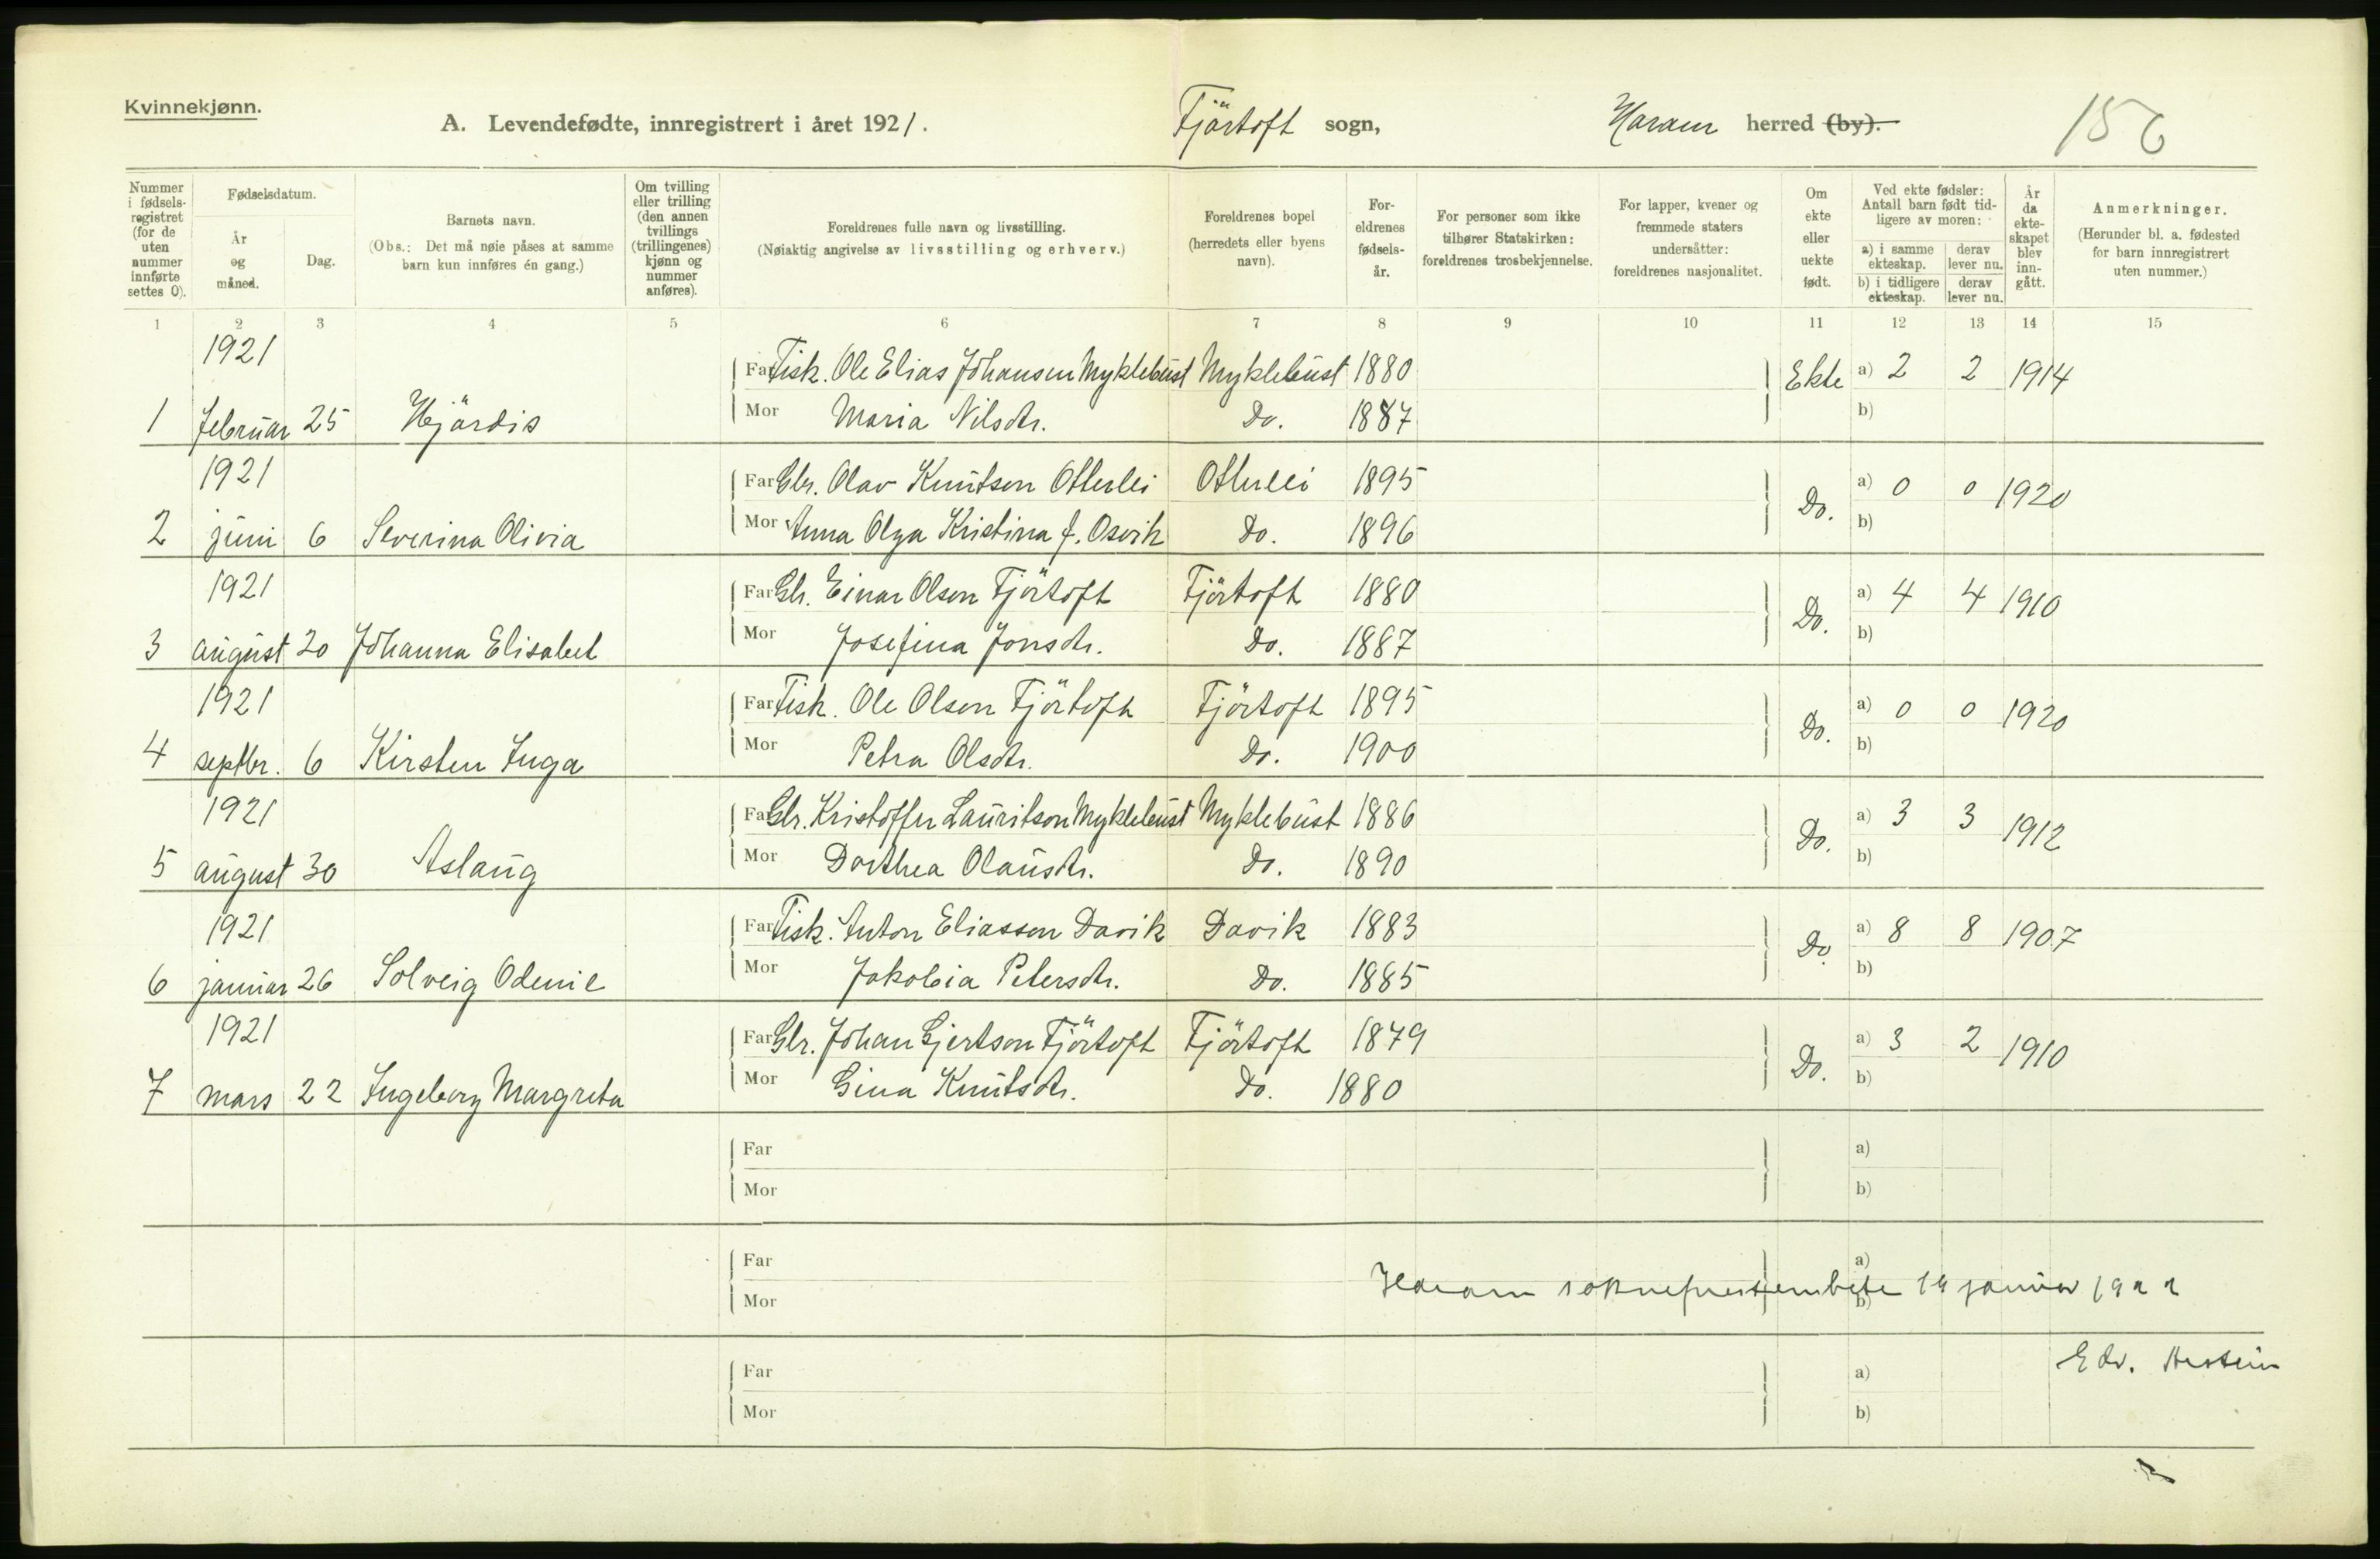 Kvinnekjønn.
A. Levendefødte, innregistrert i året 1921. Fjörtoft sogn, Haram herred (by). 156
Nummer i fødselsregistret (for de uten nummer innførte settes 0).
Fødselsdatum.
År og måned.
Dag.
Barnets navn.
(Obs.: Det må nøie påses at samme barn kun innføres én gang.)
Om tvilling eller trilling (den annen tvillings (trillingenes) kjønn og nummer anføres).
Foreldrenes fulle navn og livsstilling.
(Nøiaktig angivelse av livsstilling og erhverv.)
Foreldrenes bopel (herredets eller byens navn).
Foreldrenes fødselsår.
For personer som ikke tilhører Statskirken: foreldrenes trosbekjennelse.
For lapper, kvener og fremmede staters undersåtter: foreldrenes nasjonalitet.
Om ekte eller uekte født.
Ved ekte fødsler: Antall barn født tidligere av moren:
a) i samme ekteskap. derav lever nu.
b) i tidligere ekteskap. derav lever nu.
År da ekteskapet blev inngått.
Anmerkninger.
(Herunder bl. a. fødested for barn innregistrert uten nummer.)
1 2 3 4 5 6 7 8 9 10 11 12 13 14 15
1921 Far Fisk. Ole Elias Johansen Myklebust Myklebust 1880 Ekte a) 2 2 1914
1 februar 25 Hjördis Mor Maria Nilsdtr. Do. 1887 b)
1921 Far Gbr. Olav Knutson Otterlei Otterlei 1895 Do. a) 0 0 1920
2 juni 6 Severina Olivia Mor Anna Olga Kristina f. Osvik Do. 1896 b)
1921 Far Gbr. Einar Olsen Fjörtoft Fjörtoft 1880 Do. a) 4 4 1910
3 august 20 Johanna Elisabet Mor Josefina Jonsdtr. Do. 1887 b)
1921 Far Fisk. Ole Olsen Fjörtoft Fjörtoft 1895 Do. a) 0 0 1920
4 septbr. 6 Kirsten Inga Mor Petra Olsdtr. Do. 1900 b)
1921 Far Gbr. Kristoffer Lauritson Myklebust Myklebust 1886 Do. a) 3 3 1912
5 august 30 Aslaug Mor Dorthea Olausdtr. Do. 1890 b)
1921 Far Fisk. Anton Eliassen Davik Davik 1883 Do a) 8 8 1907
6 januar 26 Solveig Odenie Mor Jakobia Petersdtr. Do. 1885 b)
1921 Far Gbr. Johan Gjertson Fjörtoft Fjörtoft 1879 Do. a) 3 2 1910
7 mars 22 Ingeborg Margreta Mor Gina Knutsdtr. Do. 1880 b)
Far a)
Mor b)
Far a)
Mor b)
Haram sokneprestembete 14 januar 1922
Edv.
Far a)
Mor b)